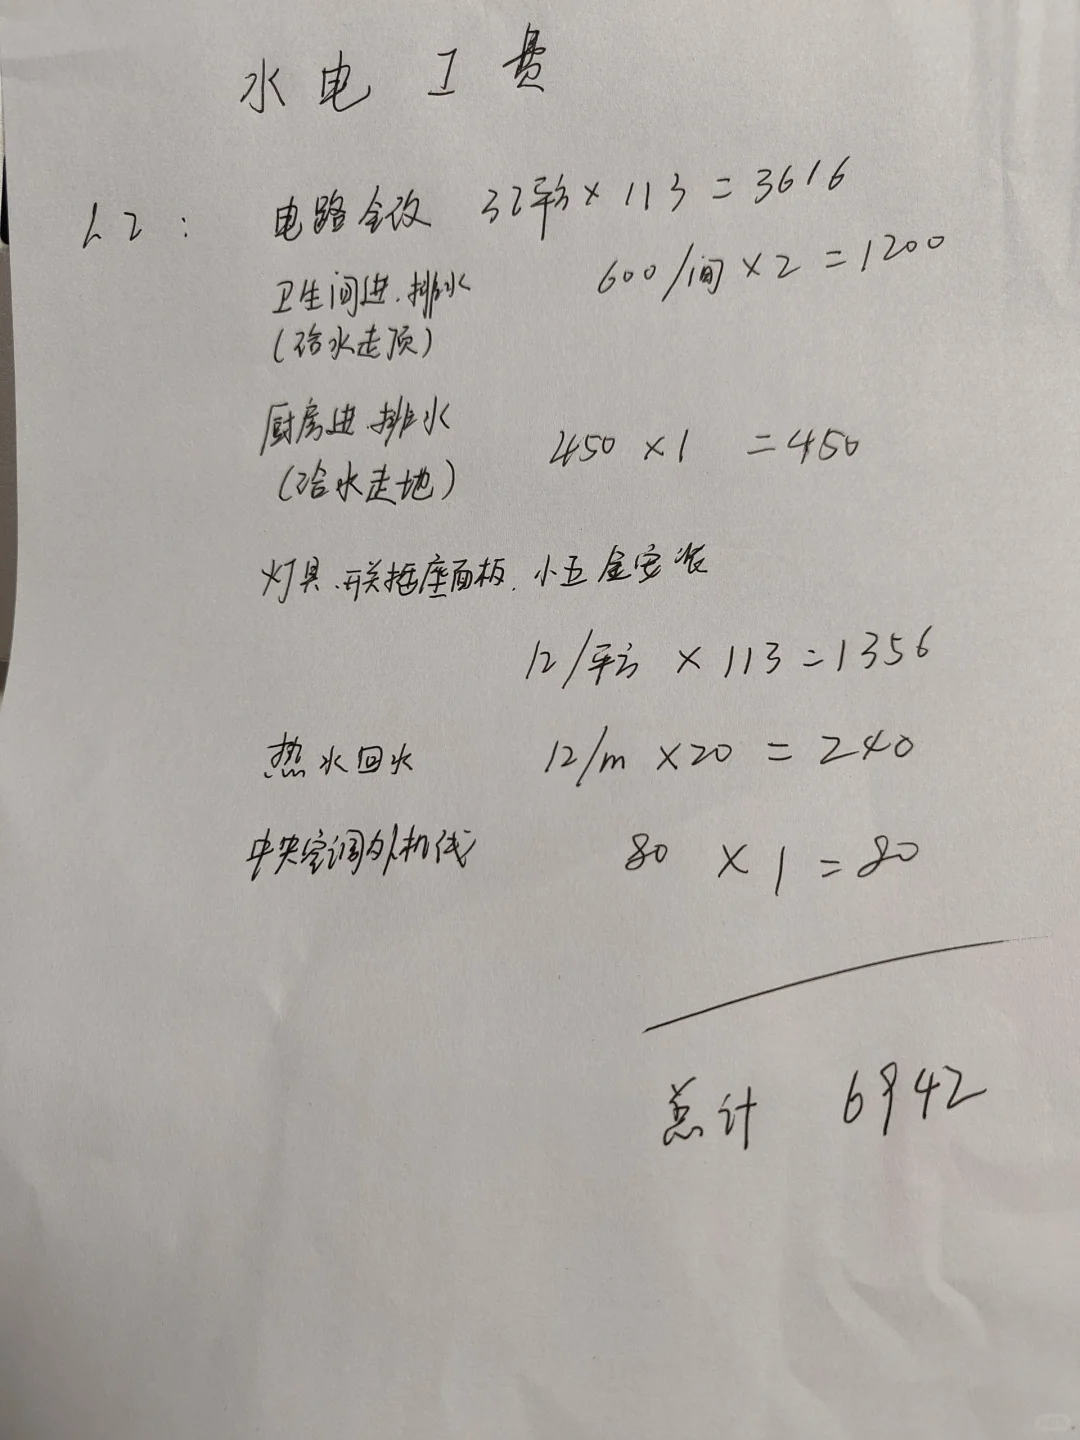 水电工费
电路全改 32平方×113=3616
卫生间进.排水 600/间×2=1200
(给水走顶)
厨房进.排水
450×1=450
(给水走地)
灯具.开关插座面板.小五金安装
12/平方×113=1356
热水回水 12/m×20=240
中央空调外机线 80×1=80
总计 6942